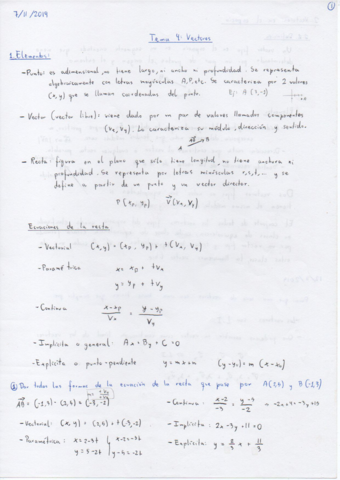 7/11/2019
①
Tema 4: Vectores
1. Elementos:
- Punto: es adimensional, no tiene largo, ni ancho ni profundidad. Se representa
algebraicamente con letras mayúsculas. A, P, etc. Se caracteriza por 2 valores
(x, y) que se llaman coordenadas del punto.
- Vector (vector libre): viene dado por un par de valores llamados componentes
(Vx, Vy). Lo caracteriza su módulo, dirección y sentido.
A B
- Recta: figura en el plano que sólo tiene longitud, no tiene anchura ni
profundidad. Se representa por letras minúsculas r, s, t, ... y se
define a partir de un punto y un vector director.
P (xp, yp) V (Vx, Vy)
Ecuaciones de la recta
- Vectorial (x, y) = (xp, yp) + t (Vx, Vy)
- Paramétrica x = xp + tVx
y = yp + tVy
- Continua x - xp / Vx = y - yp / Vy
- Implícita o general: Ax + By + C = 0
- Explícita o punto-pendiente y = mx + n (y - y0) = m (x - x0)
Dar todas las formas de la ecuación de la recta que pasa por A(2,5) y B(-1,3)
AB = (-1,3) - (2,5) = (-3,-2)
- Continua: x-2 / -3 = y-5 / -2
- Vectorial: (x, y) = (2,5) + t(-3,-2)
- Implícita: 2x - 3y + 11 = 0
- Paramétrica: x = 2-3t
y = 5-2t
- Explícita: y = 2/3 x + 11/3